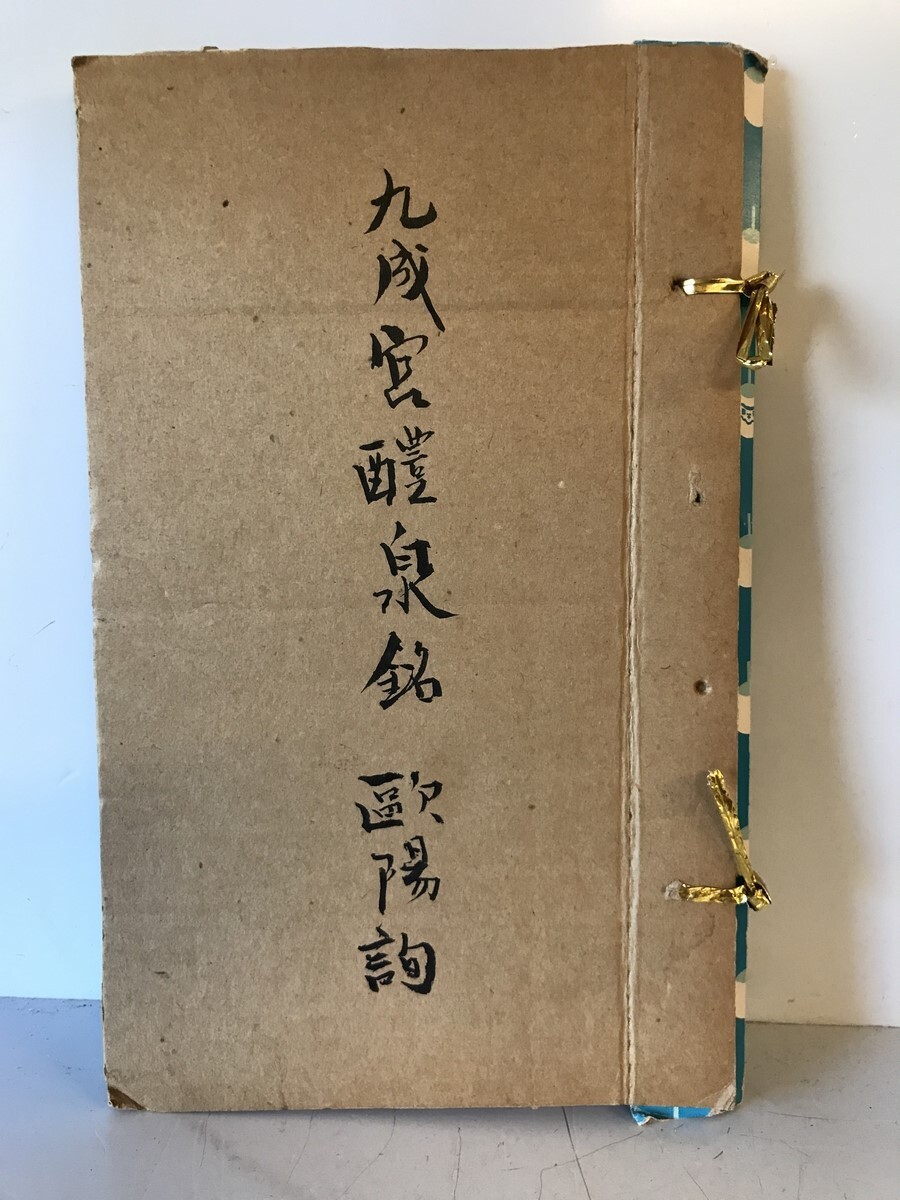 九成宮醴泉銘 歐陽詢